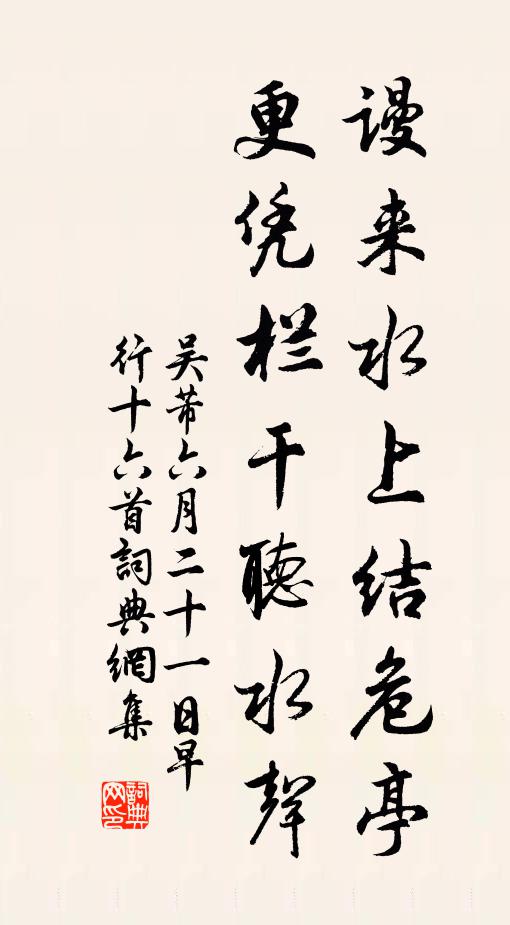 谩来水上结危亭
更凭栏干聴水声
吴芾六月二十一日早
行十六首詞典網集
詞典网印